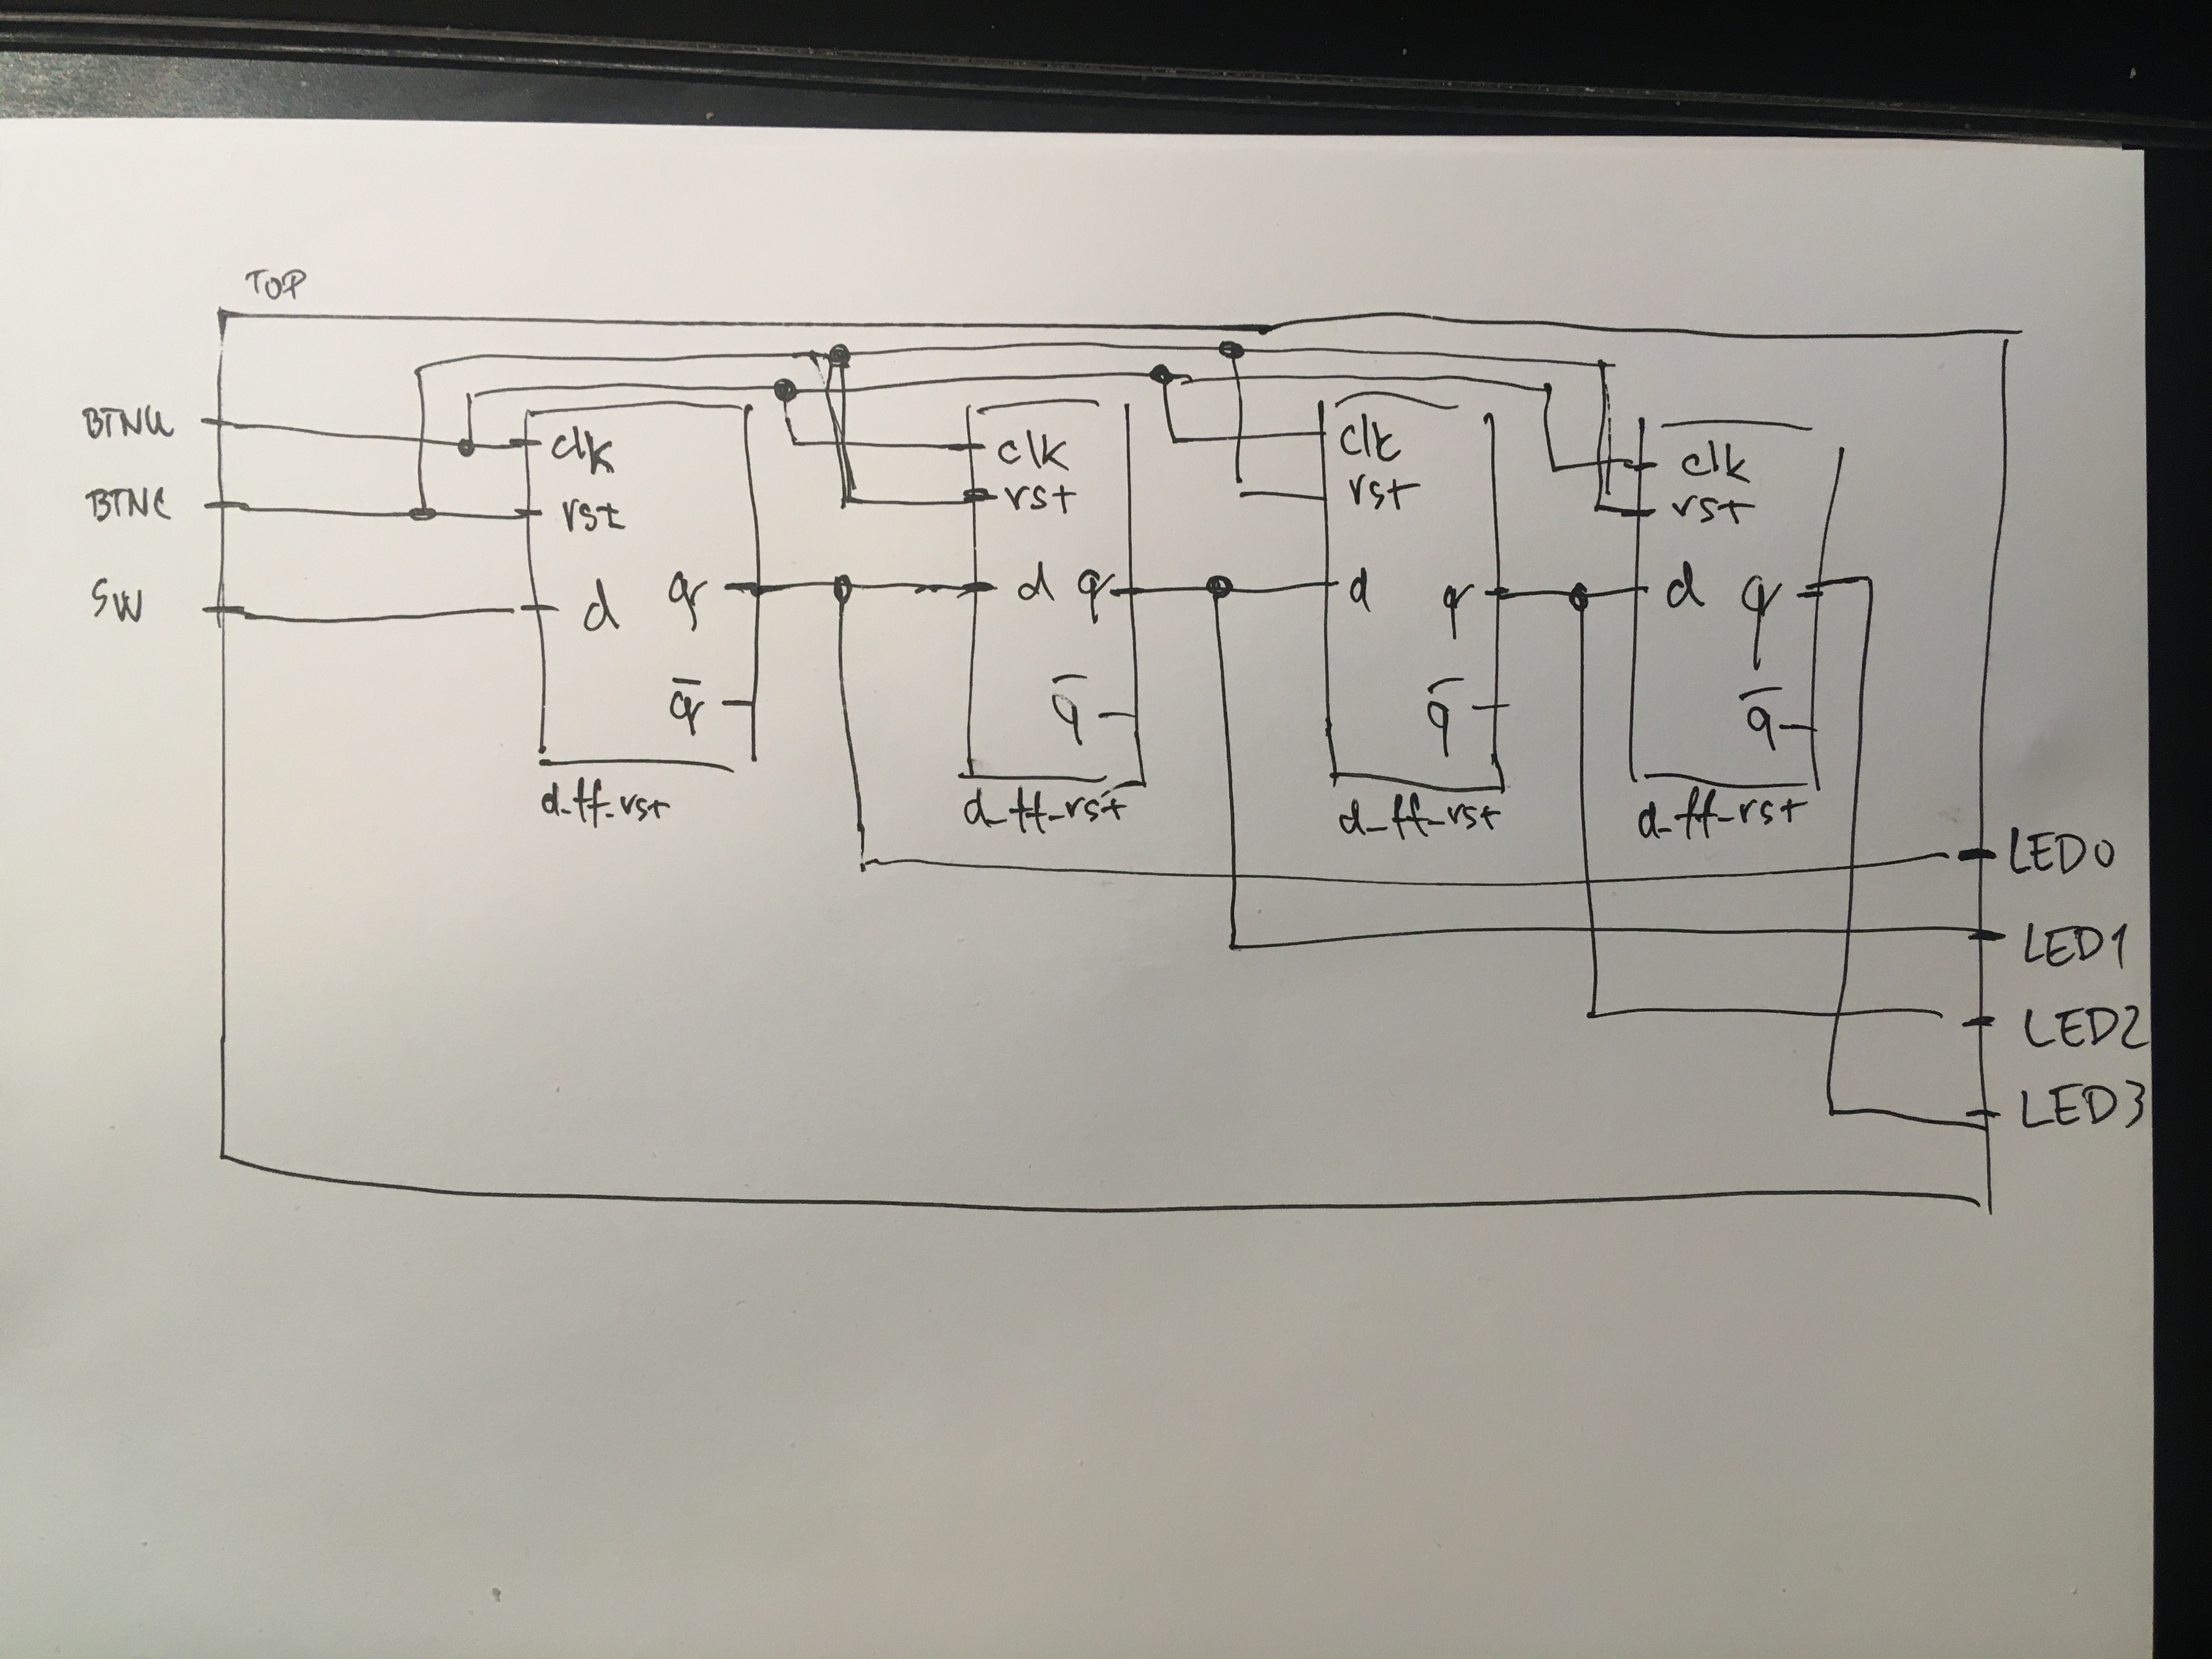 TOP
BTNU
BTNC
SW
clk
rst
d q
q̅
d_ff_rst
clk
rst
d q
q̅
d_ff_rst
clk
rst
d q
q̅
d_ff_rst
clk
rst
d q
q̅
d_ff_rst
LED0
LED1
LED2
LED3